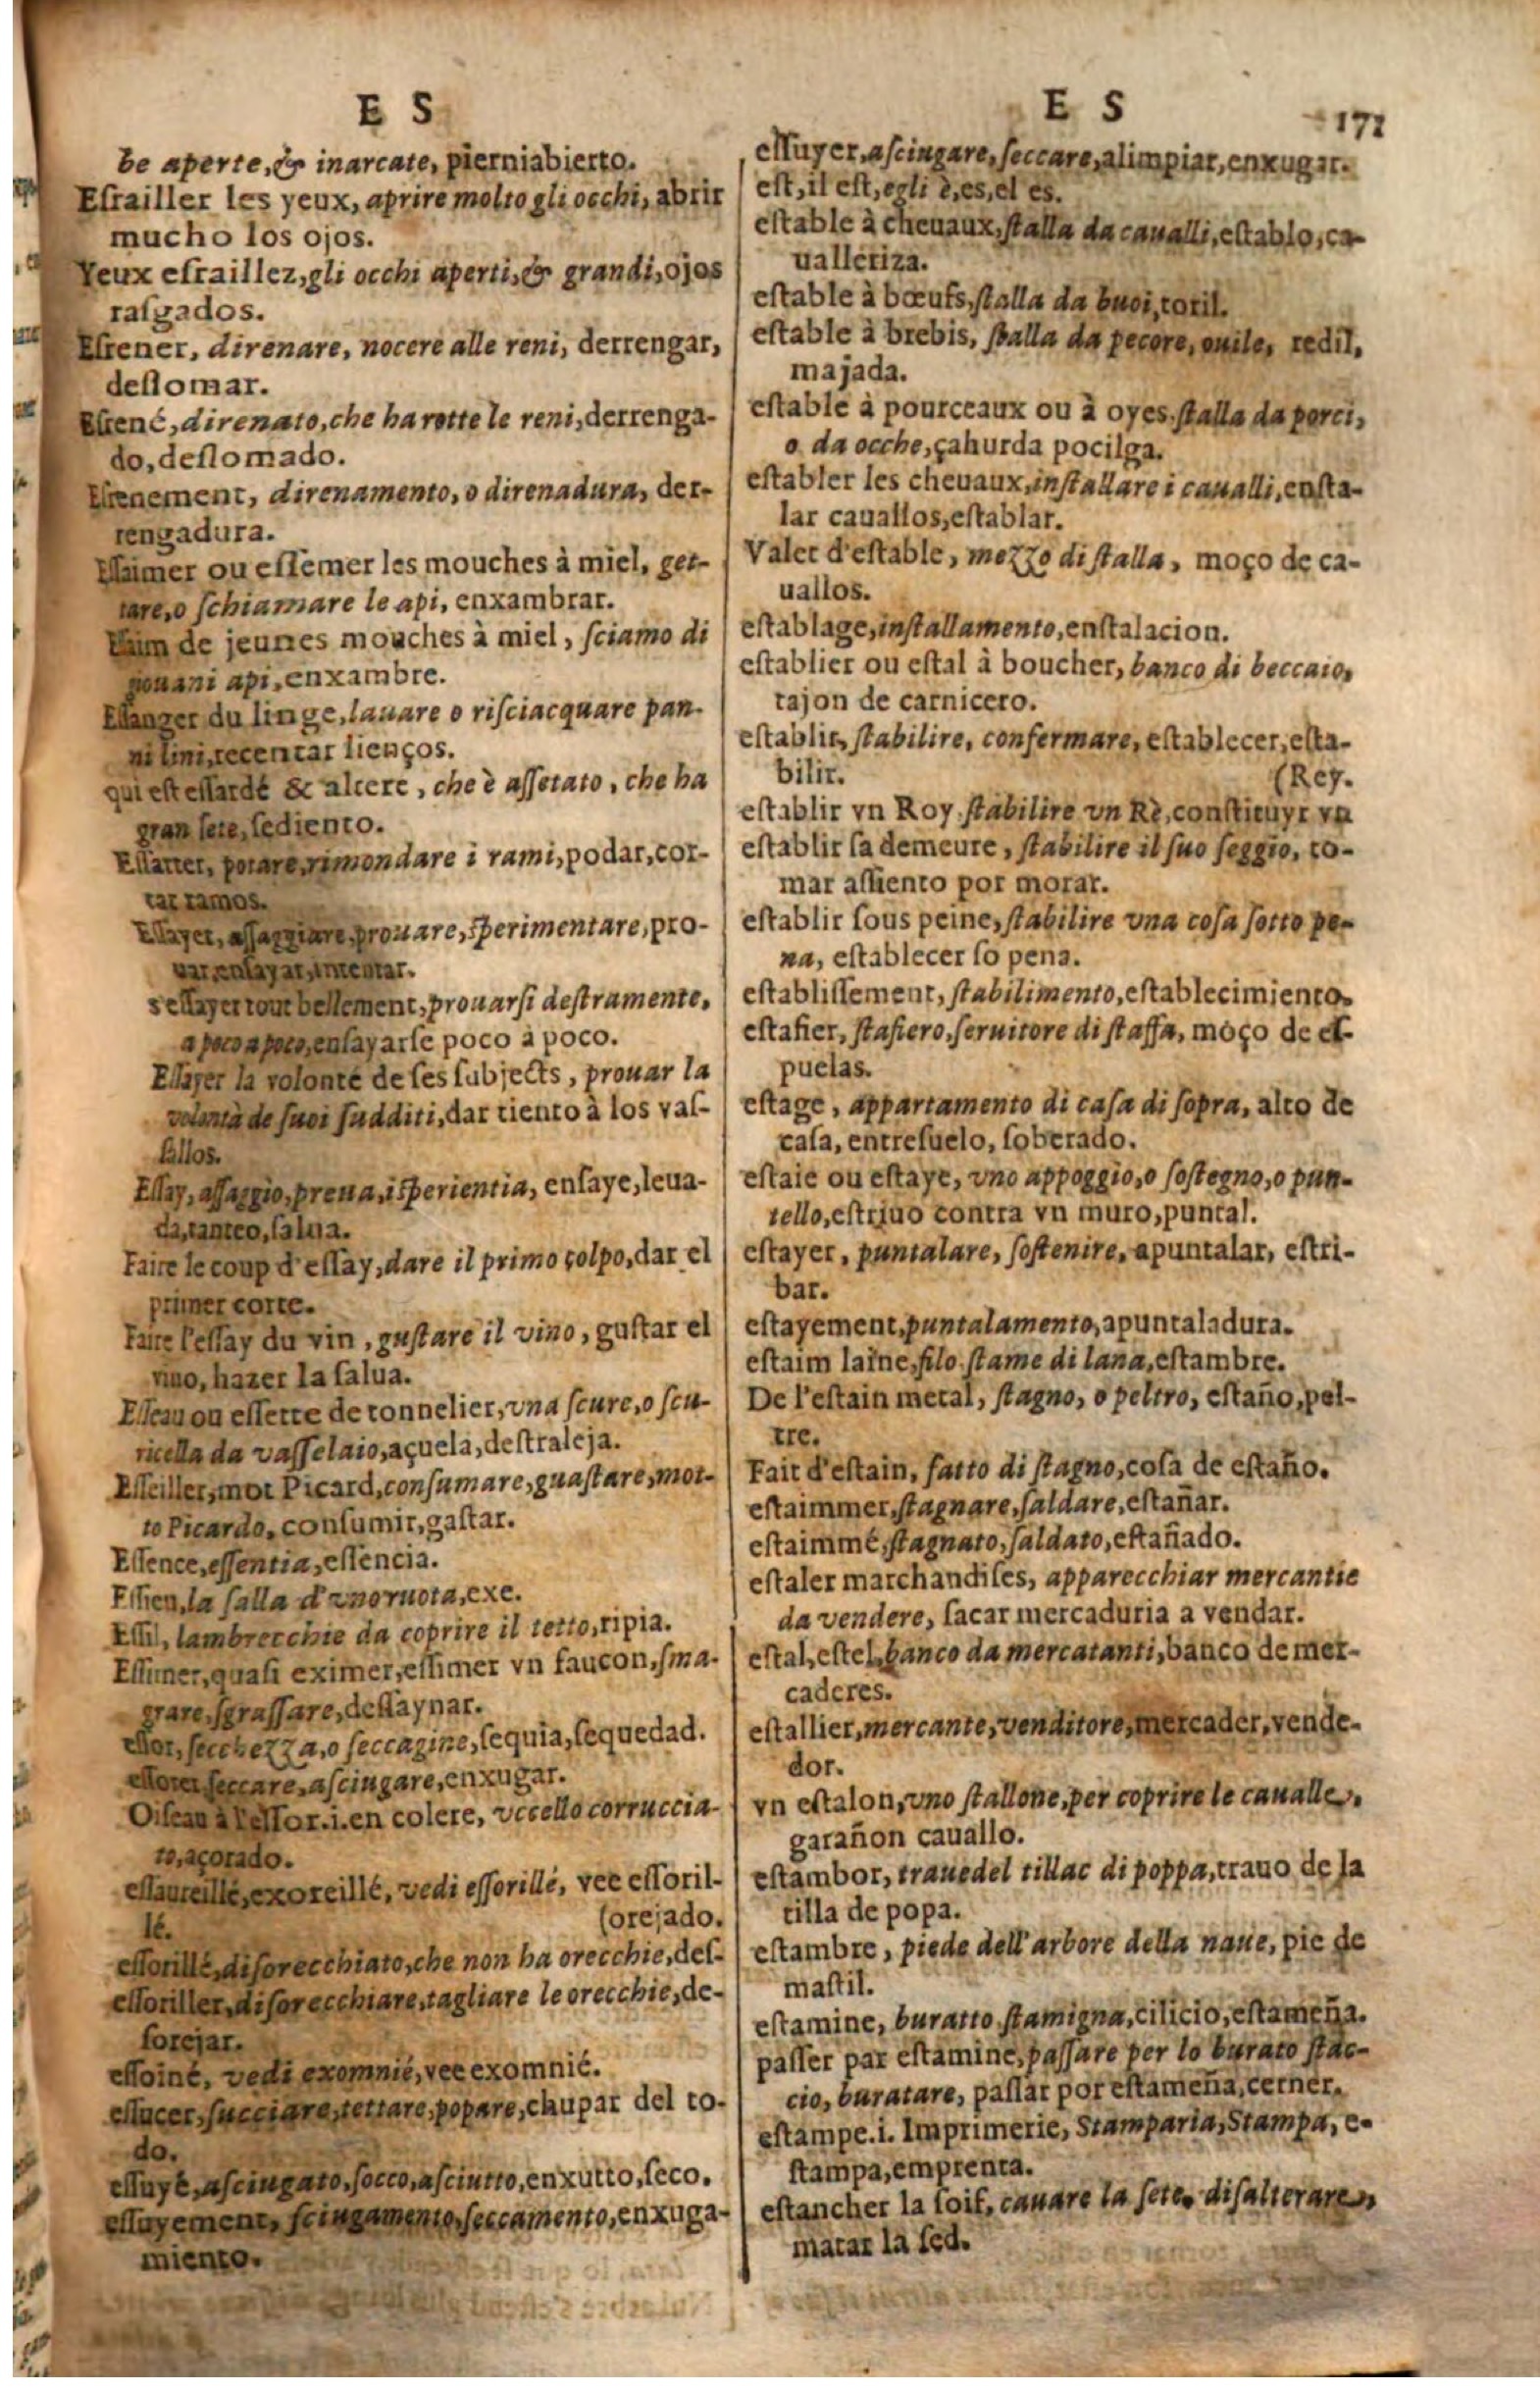 E S
be aperte, & inarcate, pierniabierto.
Eſrailler les yeux, aprire molto gli occhi, abrir
mucho los ojos.
Yeux eſraillez, gli occhi aperti, & grandi, ojos
raſgados.
Eſrener, direnare, nocere alle reni, derrengar,
deſlomar.
Eſrené, direnato, che ha rotte le reni, derrenga-
do, deſlomado.
Eſrenement, direnamento, o direnadura, der-
rengadura.
Eſſaimer ou eſſemer les mouches à miel, get-
tare, o ſchiamare le api, enxambrar.
Eſſaim de jeunes mouches à miel, ſciamo di
giouani api, enxambre.
Eſſanger du linge, lauare o riſciacquare pan-
ni lini, recentar lienços.
qui est eſſardé & altere, che è aſſetato, che ha
gran ſete, ſediento.
Eſſarter, potare, rimondare i rami, podar, cor-
tar ramos.
Eſſayer, aſſaggiare, prouare, ſperimentare, pro-
uar, enſayar, intentar.
s'eſſayer tout bellement, prouarſi deſtramente,
a poco a poco, enſayarſe poco à poco.
Eſſayer la volonté de ſes ſubjects, prouar la
volontà de ſuoi ſudditi, dar tiento à los vaſ-
ſallos.
Eſſay, aſſaggio, preua, iſperientia, enſaye, leua-
da, tanteo, ſalua.
Faire le coup d'eſſay, dare il primo colpo, dar el
primer corte.
Faire l'eſſay du vin, guſtare il vino, guſtar el
vino, hazer la ſalua.
Eſſeau ou eſſette de tonnelier, vna ſcure, o ſcu-
ricella da vaſſelaio, açuela, deſtraleja.
Eſſeiller, mot Picard, conſumare, guaſtare, mot-
to Picardo, conſumir, gaſtar.
Eſſence, eſſentia, eſſencia.
Eſſieu, la ſalla d'vno ruota, exe.
Eſſil, lambrecchie da coprire il tetto, ripia.
Eſſimer, quaſi eximer, eſſimer vn faucon, ſma-
grare, ſgraſſare, deſſaynar.
eſſor, ſecchezza, o ſeccagine, ſequia, ſequedad.
eſſorer ſeccare, aſciugare, enxugar.
Oiſeau à l'eſſor. i. en colere, vccello corruccia-
to, açorado.
eſſaureillé, exoreillé, vedi eſſorillé, vee eſſoril-
lé. (orejado.
eſſorillé, diſorecchiato, che non ha orecchie, deſ-
eſſoriller, diſorecchiare, tagliare le orecchie, de-
ſorejar.
eſſoiné, vedi exomnié, vee exomnié.
eſſucer, ſucciare, tettare, popare, chupar del to-
do.
eſſuyé, aſciugato, ſocco, aſciutto, enxutto, ſeco.
eſſuyement, ſciugamento, ſeccamento, enxuga-
miento.
E S 171
eſſuyer, aſciugare, ſeccare, alimpiar, enxugar.
eſt, il eſt, egli è, es, el es.
eſtable à cheuaux, ſtalla da caualli, eſtablo, ca-
ualleriza.
eſtable à bœufs, ſtalla da buoi, toril.
eſtable à brebis, ſtalla da pecore, ouile, redil,
majada.
eſtable à pourceaux ou à oyes, ſtalla da porci,
o da ocche, çahurda pocilga.
eſtabler les cheuaux, inſtallare i caualli, enſta-
lar cauallos, eſtablar.
Valet d'eſtable, mezzo di ſtalla, moço de ca-
uallos.
eſtablage, inſtallamento, enſtalacion.
eſtablier ou eſtal à boucher, banco di beccaio,
tajon de carnicero.
eſtablir, ſtabilire, confermare, eſtablecer, eſta-
bilir. (Rey.
eſtablir vn Roy ſtabilire vn Rè, conſtituyr vn
eſtablir ſa demeure, ſtabilire il ſuo ſeggio, to-
mar aſſiento por morar.
eſtablir ſous peine, ſtabilire vna coſa ſotto pe-
na, eſtablecer ſo pena.
eſtabliſſement, ſtabilimento, eſtablecimiento.
eſtafier, ſtafiero, ſeruitore di ſtaffa, moço de eſ-
puelas.
eſtage, appartamento di caſa di ſopra, alto de
caſa, entreſuelo, ſoberado.
eſtaie ou eſtaye, vno appoggio, o ſoſtegno, o pun-
tello, eſtriuo contra vn muro, puntal.
eſtayer, puntalare, ſoſtenire, apuntalar, eſtri-
bar.
eſtayement, puntalamento, apuntaladura.
eſtaim laine, filo ſtame di lana, eſtambre.
De l'eſtain metal, ſtagno, o peltro, eſtaño, pel-
tre.
Fait d'eſtain, fatto di ſtagno, coſa de eſtaño.
eſtaimmer, ſtagnare, ſaldare, eſtañar.
eſtaimmé, ſtagnato, ſaldato, eſtañado.
eſtaler marchandiſes, apparecchiar mercantie
da vendere, ſacar mercaduria a vendar.
eſtal, eſtel, banco da mercatanti, banco de mer-
caderes.
eſtallier, mercante, venditore, mercader, vende-
dor.
vn eſtalon, vno ſtallone, per coprire le caualle,
garañon cauallo.
eſtambor, trauedel tillac di poppa, trauo de la
tilla de popa.
eſtambre, piede dell'arbore della naue, pie de
maſtil.
eſtamine, buratto ſtamigna, cilicio, eſtameña.
paſſer par eſtamine, paſſare per lo burato ſtac-
cio, buratare, paſſar por eſtameña, cerner.
eſtampe. i. Imprimerie, Stamparia, Stampa, e-
ſtampa, emprenta.
eſtancher la ſoif, cauare la ſete, diſalterare,
matar la ſed.